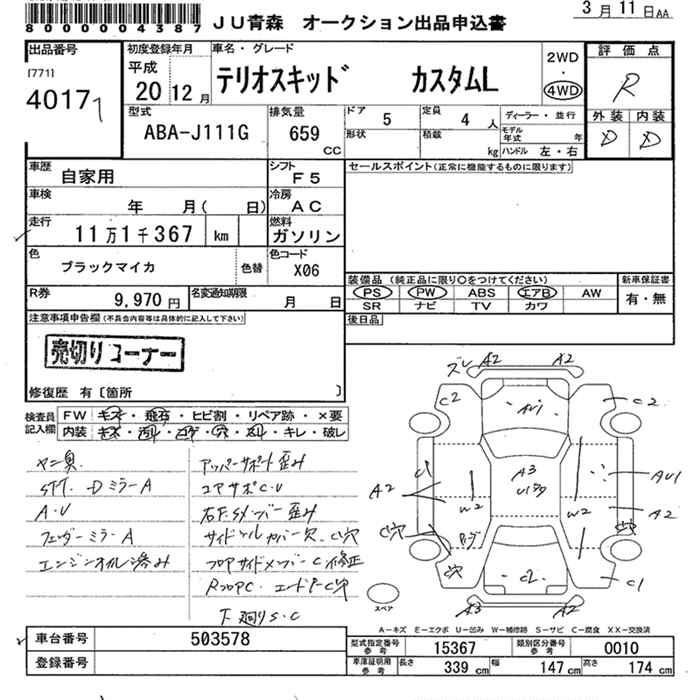 8000004387
JU青森 オークション出品申込書
3月11日AA
出品番号
[771]
40177
初度登録年月
平成
20 12月
車名・グレード
テリオスキッド カスタムL
2WD
・
4WD
評価点
R
外装 内装
D D
型式
ABA-J111G
排気量
659
cc
ドア 5
形状
定員 4 人
積載 kg
ディーラー・並行
モデル年式 年
ハンドル 左・右
車歴
自家用
シフト
F5
セールスポイント(正常に機能するものに限ります)
車検
年 月( 日)
冷房
AC
走行
11万1千367 km
燃料
ガソリン
色
ブラックマイカ
色替
色コード
X06
装備品(純正品に限り○をつけてください)
PS PW ABS エアB AW
SR ナビ TV カワ
新車保証書
有・無
R券
9,970円
名変通知期限
月 日
後日品
注意事項申告欄(不具合内容等は具体的に記入して下さい)
売切りコーナー
修復歴 有[箇所 ]
検査員記入欄
FW キズ・飛石・ヒビ割・リペア跡・×要
内装 キズ・汚れ・コゲ・穴・スレ・キレ・破レ
ヤニ臭
STT. DミラーA
A・U
フェンダーミラーA
エンジンオイル滲み
アッパーサポート歪み
コアサポC.U
右Fメンバー歪み
サイドシルカバー欠. C穴
フロアサイドメンバーC修正
RフロアC. エンドアーC穴
下廻りS・C
ズレ A2 A2
C2 AU1 C2
C1 A3 AU1
A2 W2 W2 A2
C穴 C穴
C穴 C2 C1
A3 A2
スペア
A-キズ E-エクボ U-凹み W-補修跡 S-サビ C-腐食 XX-交換済
車台番号 503578
登録番号
型式指定番号参考 15367 類別区分番号参考 0010
車庫証明用参考 長さ 339cm 幅 147cm 高さ 174cm